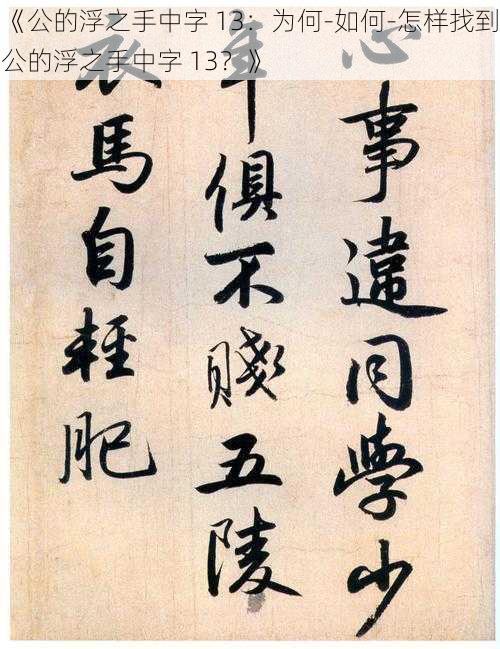 《公的浮之手中字 13：为何-如何-怎样找到
公的浮之手中字 13？》
心事違同學少
年俱不賤五陵
衣馬自輕肥